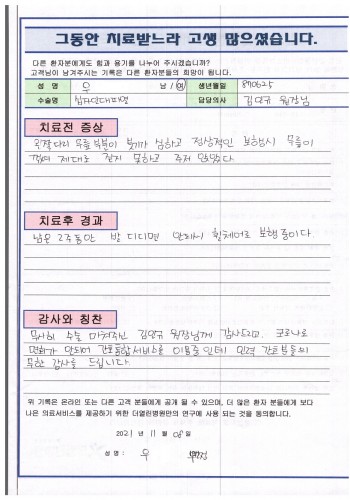 그동안 치료받느라 고생 많으셨습니다.
다른 환자분에게도 힘과 용기를 나누어 주시겠습니까?
고객님이 남겨주시는 기록은 다른 환자분들의 희망이 됩니다.
성 명 우 남 / 여 생년월일 870625
수술명 담당의사 김민규 원장님
치료전 증상
오른다리 무릎 부분이 붓기가 심하고 정상적인 보행시 무릎이
꺾여 제대로 걷지 못하고 주저 앉았다
치료후 경과
남은 2주동안 발 디디면 안되서 휠체어로 보행중이다
감사와 칭찬
무사히 수술 마쳐주신 김민규 원장님께 감사드리고, 코로나로
면회가 안되어 간호통합서비스를 이용중인데 인력 간호분들의
무한 감사를 드립니다.
위 기록은 온라인 또는 다른 고객 분들에게 공개 될 수 있으며, 더 많은 환자 분들에게 보다
나은 의료서비스를 제공하기 위한 더열린병원만의 연구에 사용 되는 것을 동의합니다.
2021 년 11 월 08 일
성 명 : 우